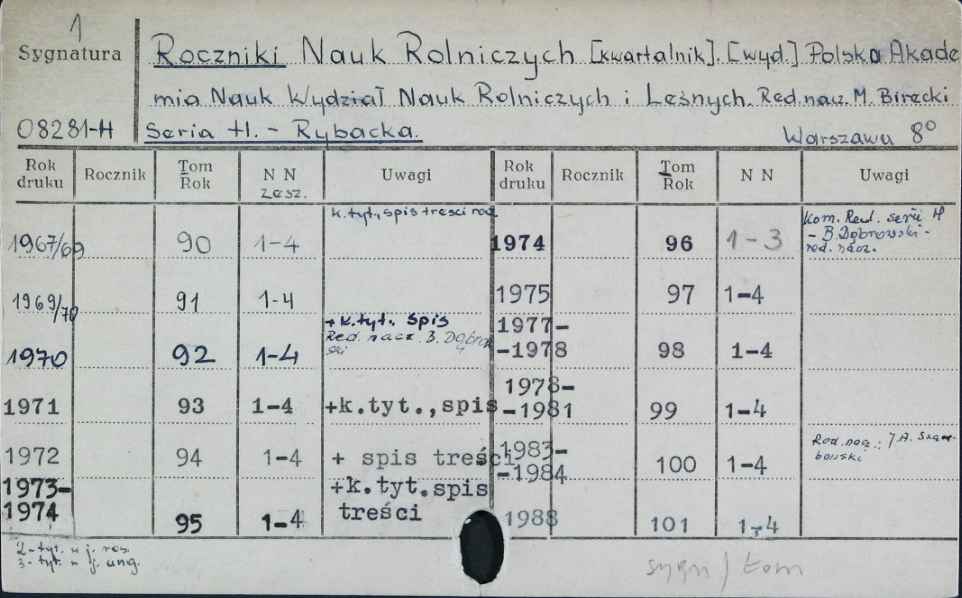 1
Sygnatura
Roczniki Nauk Rolniczych [kwartalnik]. [wyd.] Polska Akade
mia Nauk Wydział Nauk Rolniczych i Leśnych. Red. nac. M. Birecki
08281-H Seria H. - Rybacka. Warszawa 8°
Rok druku Rocznik Tom Rok N N zesz. Uwagi Rok druku Rocznik Tom Rok N N Uwagi
1967/69 90 1-4 k. tyt., spis treści 1974 96 1-3 Kom. Red. serii H - B. Dąbrowski - red. nacz.
1969/70 91 1-4 1975 97 1-4
1970 92 1-4 + k. tyt., spis Red. nacz. B. Dąbrowski 1977--1978 98 1-4
1971 93 1-4 +k.tyt.,spis 1978--1981 99 1-4
1972 94 1-4 + spis treści 1983--1984 100 1-4 Red. nac.:
1973-1974 95 1-4 +k.tyt.spis treści 1988 101 1-4
2-tyt. w j. ros.
3-tyt. w j. ang.
sygn / tom